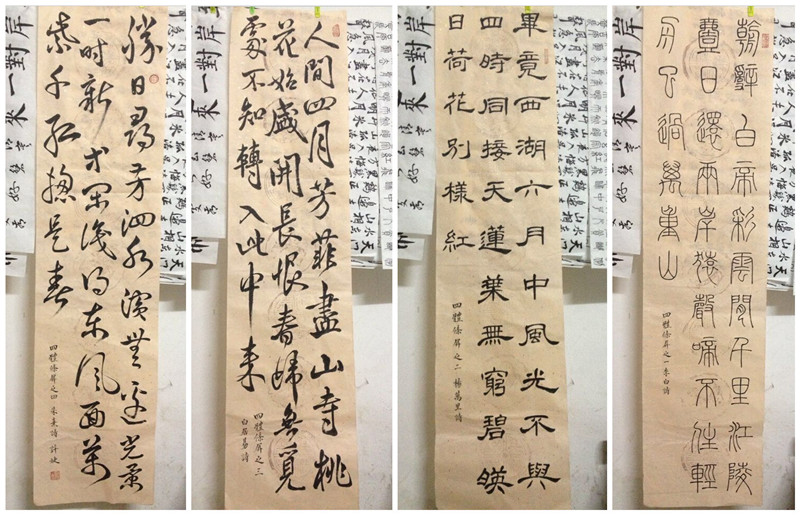 朝辭白帝彩雲間千里江陵
壹日還兩岸猿聲啼不住輕
舟已過萬重山
四體條屏之一李白詩
畢竟西湖六月中風光不與
四時同接天蓮葉無窮碧暎
日荷花別樣紅
四體條屏之二 楊萬里詩
人間四月芳菲盡山寺桃
花始盛開長恨春歸無覓
處不知轉入此中來
四體條屏之三
白居易詩
勝日尋芳泗水濱無邊光景
一時新等閑識得東風面萬
紫千紅總是春
四體條屏之四 朱熹詩